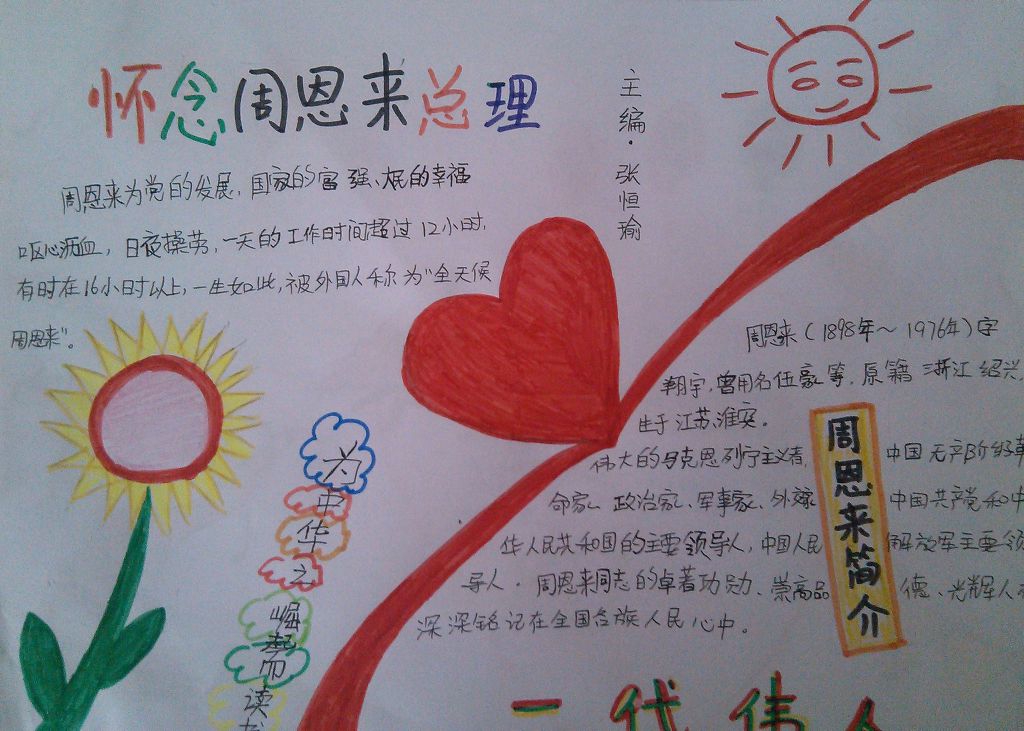 怀念周恩来总理
主编·张恒瑜
周恩来为党的发展,国家的富强、人民的幸福
呕心沥血,日夜操劳,一天的工作时间超过12小时,
有时在16小时以上,一生如此,被外国人称为“全天候
周恩来”。
为中华之崛起而读书
周恩来(1898年~1976年)字
翔宇,曾用名伍豪等,原籍浙江绍兴,
生于江苏淮安。
伟大的马克思列宁主义者,中国无产阶级革
命家、政治家、军事家、外交家 中国共产党和中
华人民共和国的主要领导人,中国人民解放军主要领
导人·周恩来同志的卓著功勋、崇高品德、光辉人
深深铭记在全国各族人民心中。
周恩来简介
一代伟人